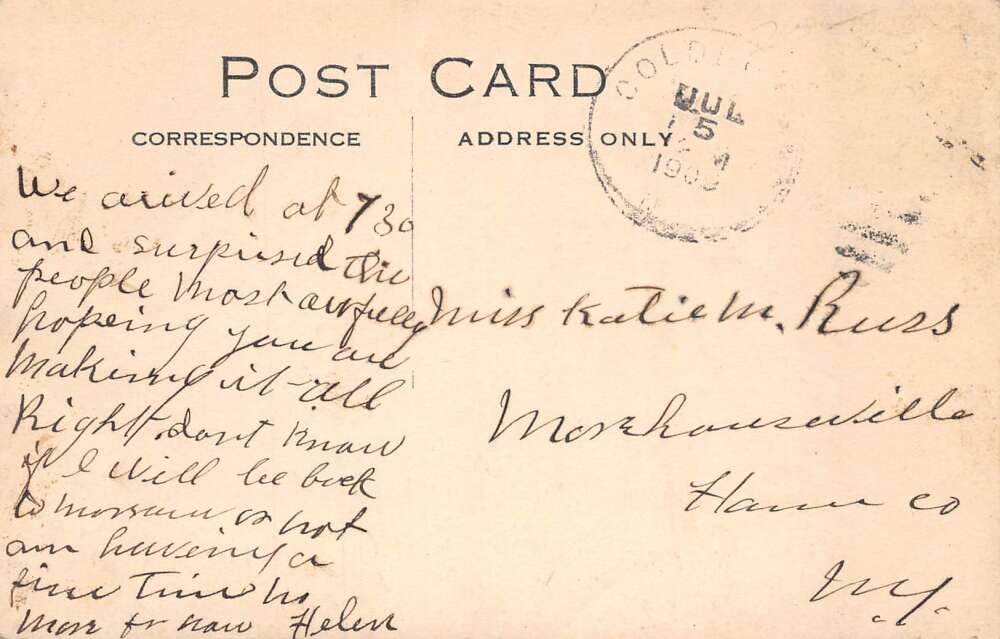 POST CARD
CORRESPONDENCE
ADDRESS ONLY
COLD
JUL
5
M
190
We arived at 730
and surprised the
people most awfully
hopeing you are
making it all
Right dont know
if I will be back
tomorrow or not
am haveing a
fine time no
more for now Helen
Miss Katie M. Russ
Morehouseville
Ham co
N.Y.